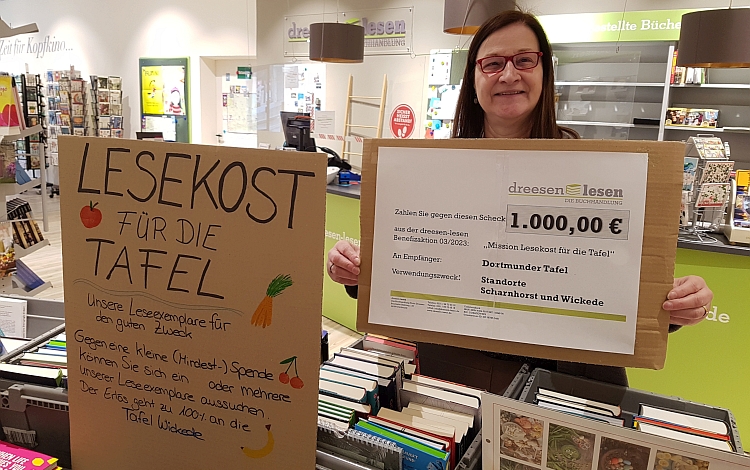 Zeit für Kopfkino...
dreesen lesen
BUCHHANDLUNG
estellte Bücher
LESEKOST
FÜR DIE
TAFEL
Unsere Leseexemplare für
den guten Zweck
Gegen eine kleine (Mindest-) Spende
können Sie sich ein oder mehrere
unserer Leseexemplare aussuchen.
Der Erlös geht zu 100% an die
Tafel Wickede
dreesen lesen
DIE BUCHHANDLUNG
Zahlen Sie gegen diesen Scheck
1.000,00 €
aus der dreesen-lesen
Benefizaktion 03/2023:
„Mission Lesekost für die Tafel"
An Empfänger:
Dortmunder Tafel
Verwendungszweck!
Standorte
Scharnhorst und Wickede